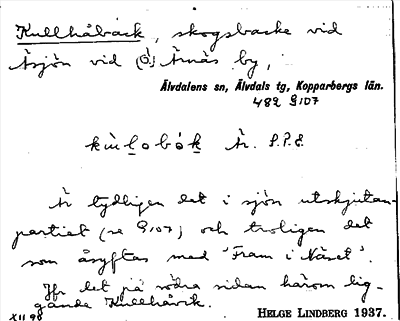 Kullhåback, skogsbacke vid
Åsjön vid (Ö) Årnäs by,
Älvdalens sn, Älvdals tg, Kopparbergs län.
482 G107
kùḷobók Är. S.P.E.
Är tydligen det i sjön utskjutan-
partiet (se G107) och troligen det
som åsyftas med 'Fram i Näset'.
Jfr det på södra sidan härom lig-
gande Kullhåvik.
XII 98
HELGE LINDBERG 1937.